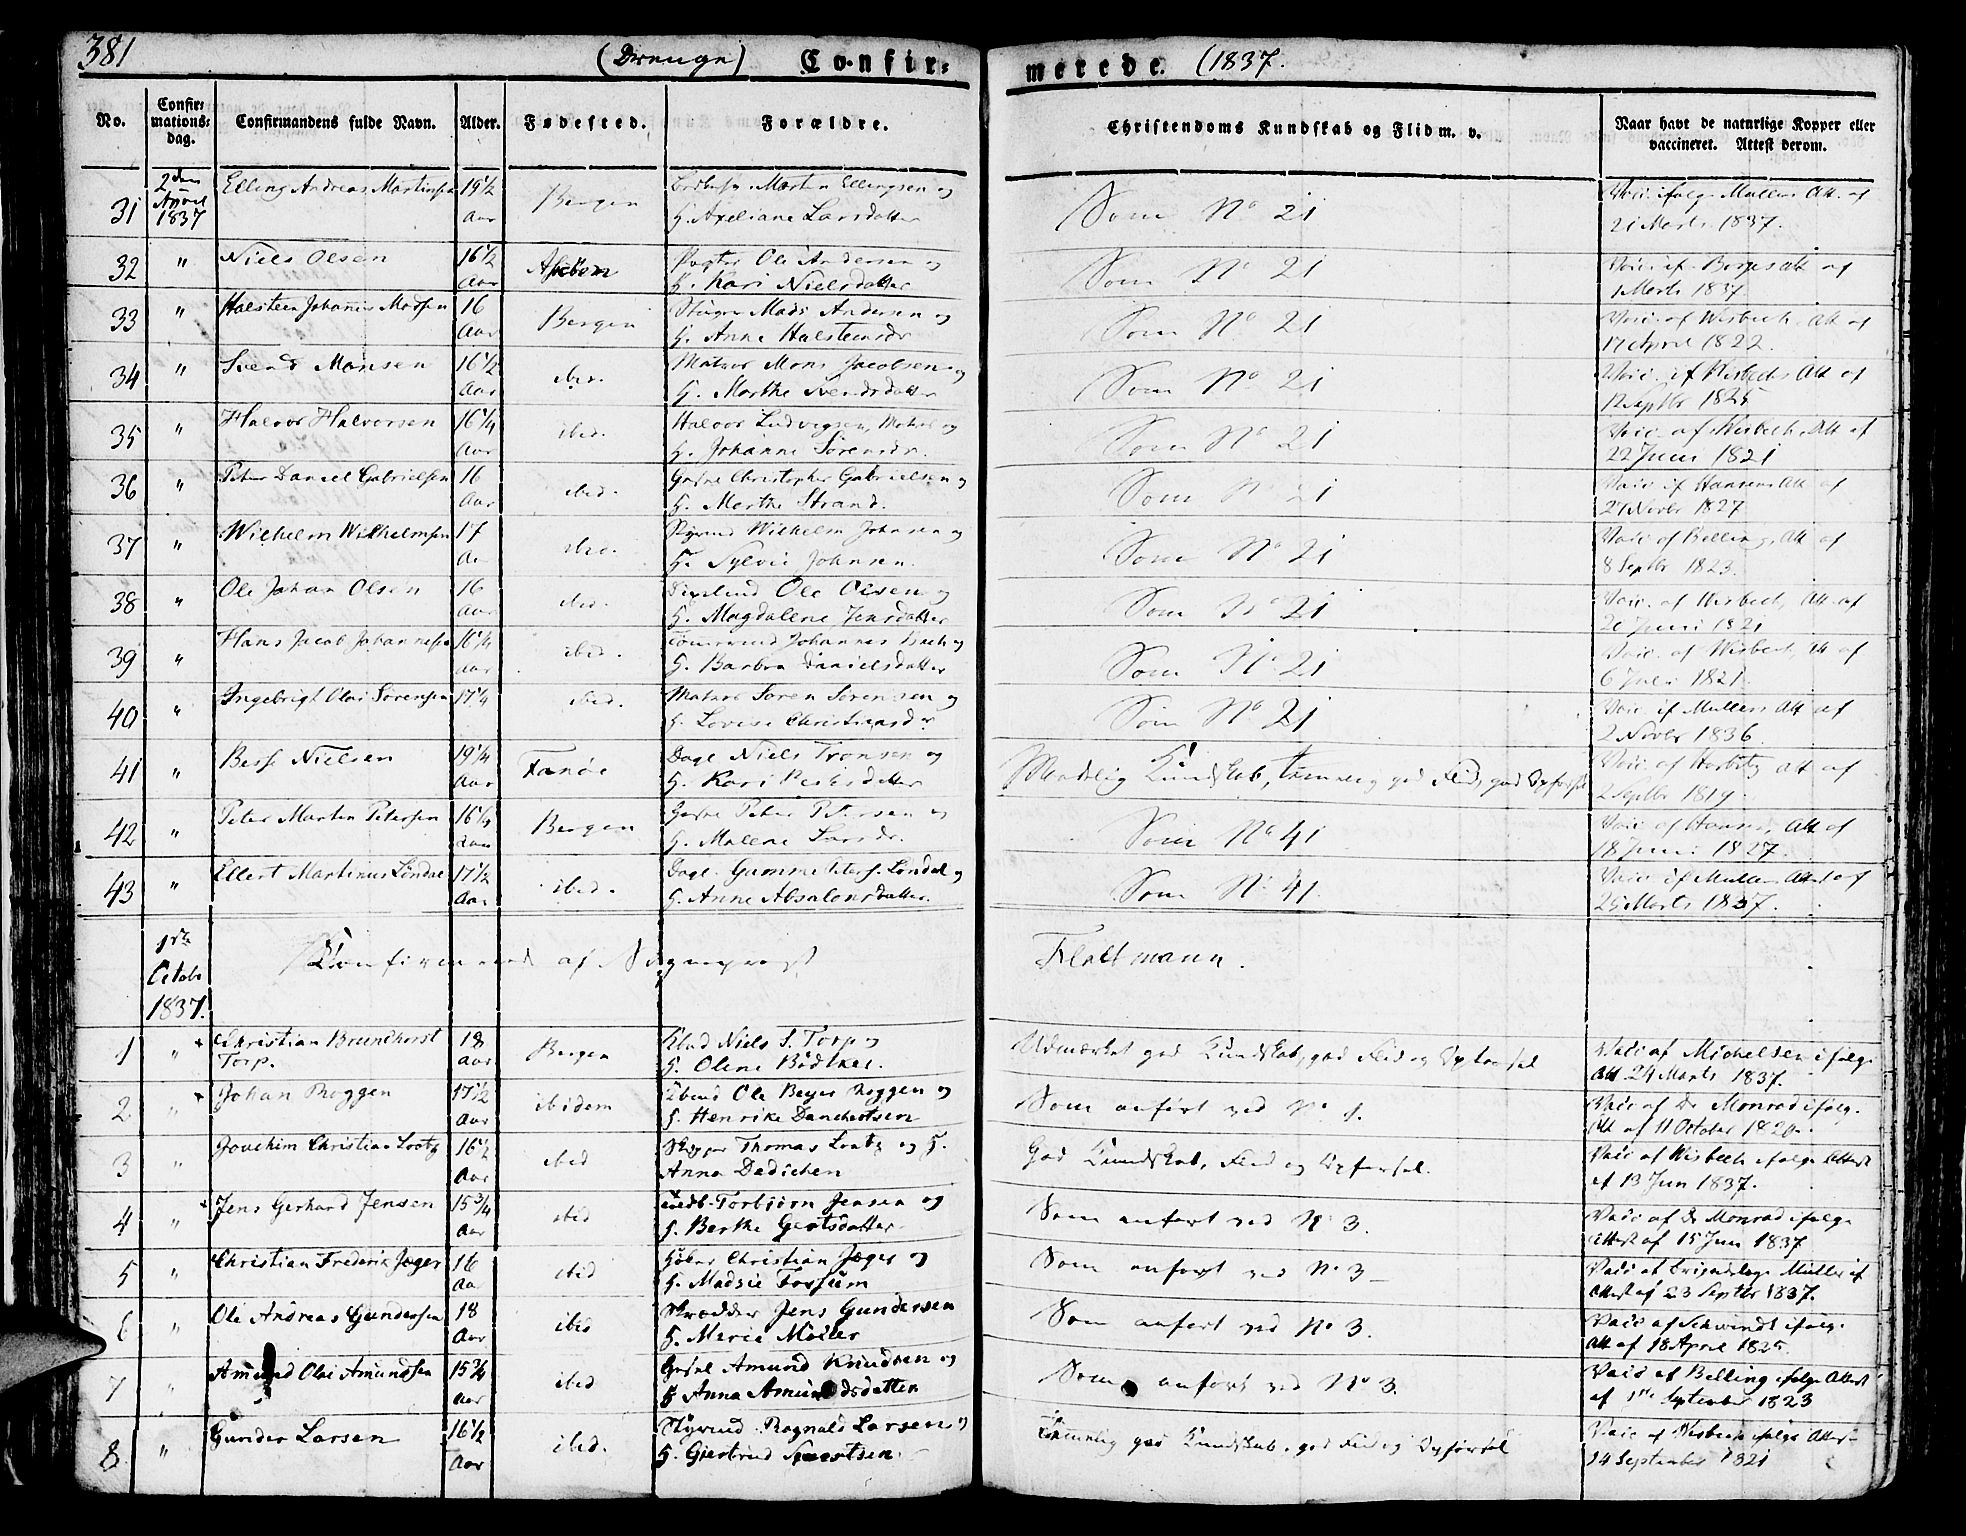 381 (Drenge) Confir= merede. (1837.
No. Confir= mations= dag. Confirmandens fulde Navn. Alder. Fødested. Forældre. Christendoms Kundskab og Flid m. v. Naar havt de naturlige Kopper eller vaccineret. Attest derom.
31 2den April 1837 Elling Andreas Martinsen 19½ Aar Bergen Morten Ellingsen og H. Axeliane Larsdatter Som No 21 Vacc. ifølge Mullers Att. af 21 Marts 1837.
32 " Niels Olsen 16½ Aar Ole Andersen og H. Kari Nielsdatter Som No 21 Vacc. if. Att af 1 Marts 1837
33 " Halsteen Johannes Madsen 16 Aar Bergen Mads Andersen og H. Anne Halsteensdr Som No 21 Vacc. af Wisbech, Att af 17 April 1822.
34 " Svend Monsen 16½ Aar ibid. Matros Mons Jacobsen og H. Marthe Svendsdatter Som No 21 Vacc. if Wisbechs Att af 12 Septbr 1825
35 " Halvor Halvorsen 16¼ Aar ibid. Halvor Ludvigsen, Matros og H. Johanne Sørensdr. Som No 21 Vacc. af Wisbech, Att af 22 Juni 1821
36 " Peter Daniel Gabrielsen 16 Aar ibid. Christopher Gabrielsen og H. Marthe Strand. Som No 21 Vacc if Hansens Att af 27 Novbr 1827
37 " Wilhelm Wilhelmsen 17 Aar ibid. Styrmd Wilhelm Johnsen og H. Sylvie Johnsen. Som No 21 Vacc af Belling, Att af 8 Septbr 1823.
38 " Ole Johan Olsen 16 Aar ibid. Ole Olsen og H. Magdalene Jensdatter Som No 21 Vacc. af Wisbech, Att af Juni 1821
39 " Hans Jacob Johannesen 16¼ Aar ibid. Tømmermd Johannes Bech og H. Barbra Danielsdatter Som No 21 Vacc. af Wisbech, Att af 6 Juli 1821.
40 " Ingebrigt Olai Sørensen 17¼ ibid. Matros Søren Sørensen og H. Lovise Christiansdr Som No 21 Vacc. if Mullers Att af 2 Novbr 1836
41 " Nielsen 19¼ Aar Fanöe Dagl Niels Tronsen og H. Kari Pedersdatter Maadelig Kundskab, temmelig god Flid, god Opførsel Vacc. af Att af 2 Septbr 1819.
42 " Peter Martin Petersen 16¼ Aar Bergen Peter Petersen og H. Malene Larsdr. Som No 41 Vacc af Att af 18 Juni 1827.
43 " Ellert Martinus Løndal 17½ Aar ibid. Dagl. Gamme Peters. Løndal og H. Anne Absalonsdatter. Som No 41. Vacc. if Mullers Att af 25 Marts 1837.
1ste Octobr 1837. Confirmerede af Sogneprest Flottmann.
1 " Christian Brunchorst Torp. 18 Aar Bergen Kbmd Niels S. Torp og H. Olene Bödtker. Udmærket god Kundskab, god Flid og Opførsel Vacc af Michelsen ifølge Att 24 Marts 1837.
2 " Johan Roggen 17½ Aar ibidem Kbmd Ole Beyer Roggen og H. Henrike Danchertsen Som anført ved No 1. Vacc af Dr Monrad ifølg. Att af 11 October 1820.
3 " Jochim Christian Lootz 16½ Aar ibid Skipper Thomas Lootz og H. Anna Dedichen God Kundskab, Flid og Opførsel. Vacc af Wisbech ifølge Attest af 13 Jun 1837.
4 " Jens Gerhard Jensen 15¾ Aar ibid Torbjörn Jensen og H. Berthe Gertsdatter Som anført ved No 3. Vacc af Dr Monrad ifølge Attest af 15 Jun 1837
5 " Christian Frederik Jæger 16 Aar ibid Christian Jæger og H. Madsie Forsum Som anført ved No 3 Vacc af Brigadelæge Müller if Attest af 23 Septbr 1837.
6 " Ole Andreas Gundersen 18 Aar ibid Skrædder Jens Gundersen H. Marie Möller Som anført ved No 3. Vacc af Schwindt ifølg. Att af 18 April 1825.
7 " Amund Olai Amundsen 15¾ Aar ibid Amund Knudsen og H Anna Amundsdatter Som anført ved No 3. Vacc af Belling ifølge Attest af 1ste September 1823
8 " Gunder Larsen 16½ Aar ibid. Styrmd Rognald Larsen og H. Gjertrud Temmelig god Kundskab, god Flid og Opførsel Vacc af Wisbech ifølge Attest 14 September 1821